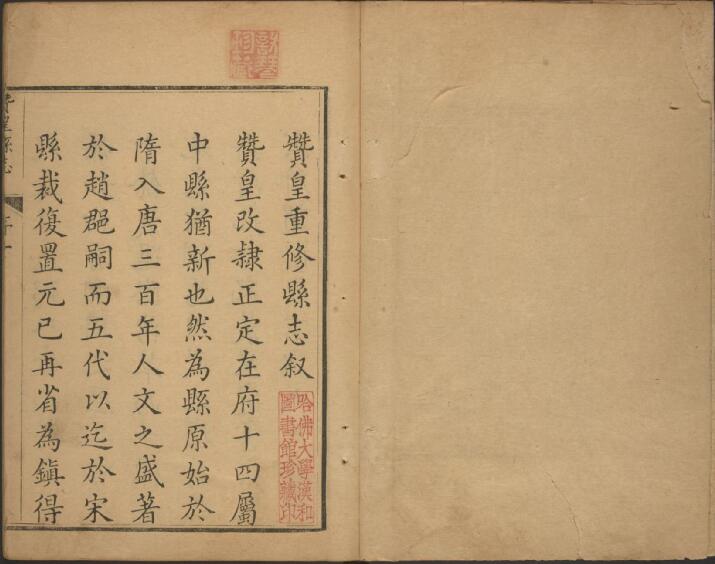 贊皇重修縣志叙
贊皇改隷正定在府十四屬
中縣猶新也然為縣原始於
隋入唐三百年人文之盛著
於趙郡嗣而五代以迄於宋
縣裁復置元已再省為鎮得
哈佛大學漢和
圖書館珍藏印